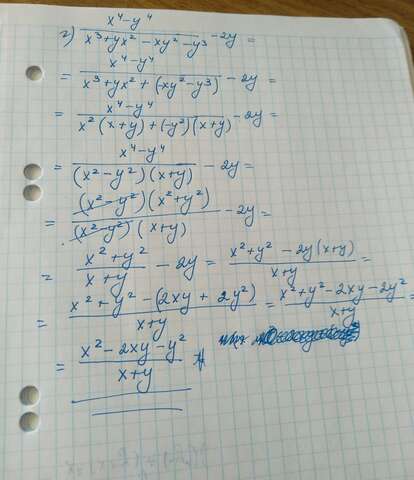 г) (x⁴-y⁴)/(x³+yx²-xy²-y³) -2y =
= (x⁴-y⁴)/(x³+yx²+(-xy²-y³)) -2y =
= (x⁴-y⁴)/(x²(x+y)+(-y²)(x+y)) -2y =
= (x⁴-y⁴)/((x²-y²)(x+y)) -2y =
= ((x²-y²)(x²+y²))/((x²-y²)(x+y)) -2y =
= (x²+y²)/(x+y) -2y = (x²+y²-2y(x+y))/(x+y) =
= (x²+y²-(2xy+2y²))/(x+y) = (x²+y²-2xy-2y²)/(x+y) =
= (x²-2xy-y²)/(x+y)